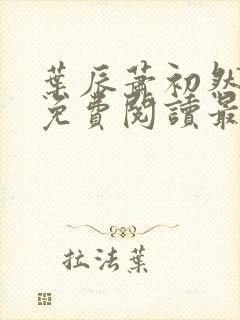 葉辰蕭初然
免費閱讀最
拉法葉